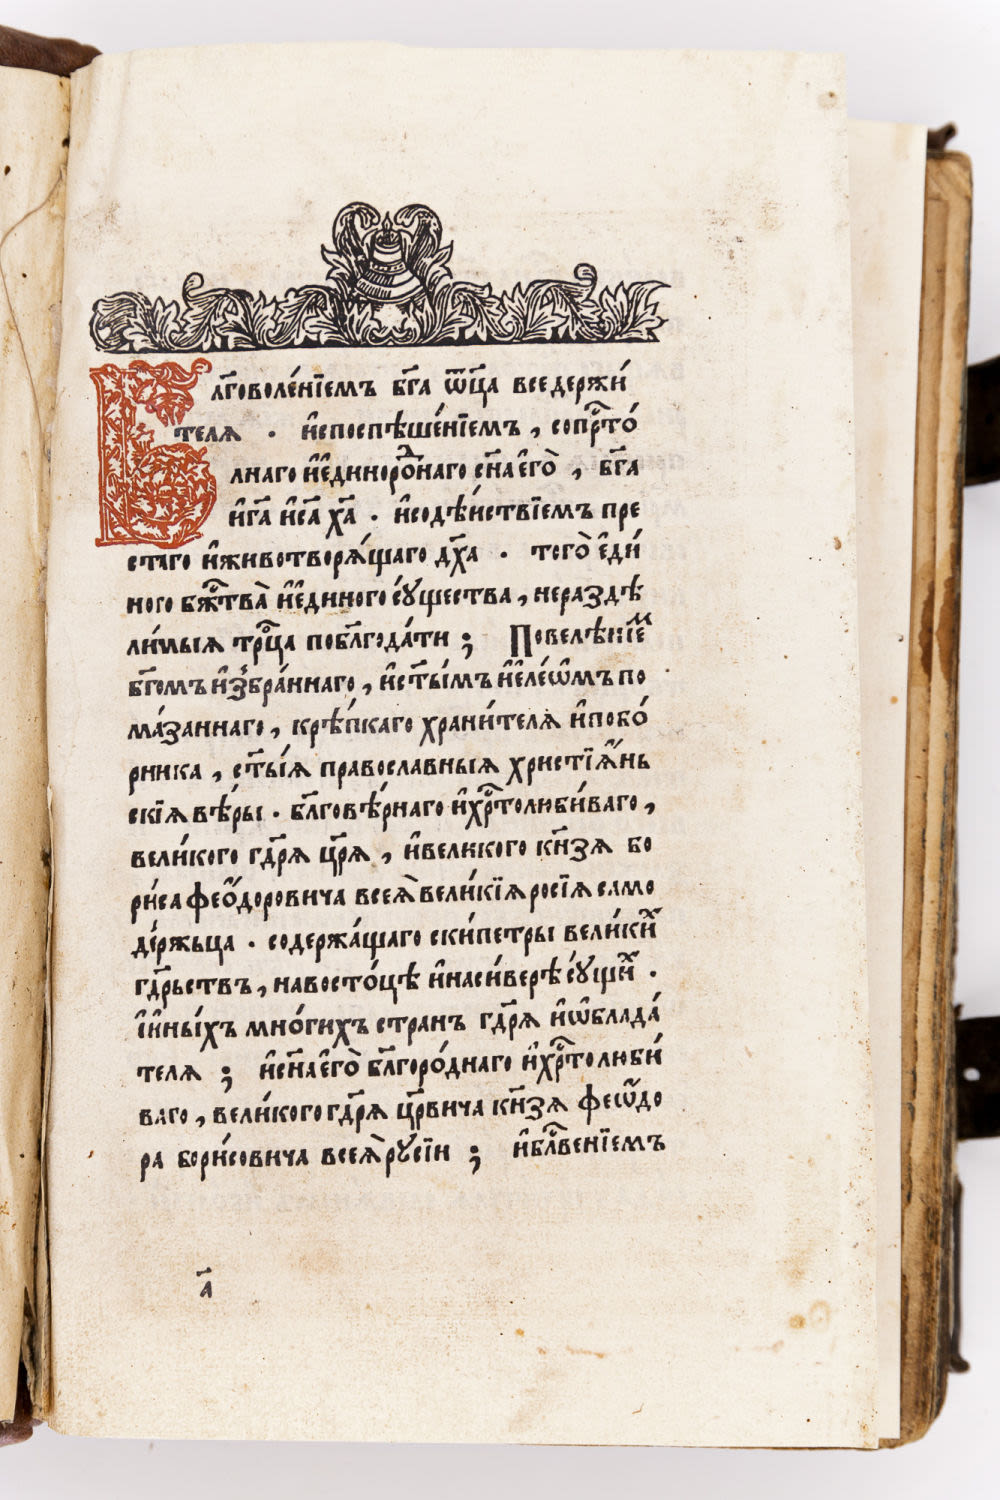 Бл҃говоле́нїемъ бг҃а ѿц҃а вседержи́
телѧ . и҆поспѣше́нїемъ , сопрⷭ҇то́
лнаго и҆є҆диноро́ⷣнаго сн҃а є҆гѡ̀ , бг҃а
и҆ гд҃а і҆и҃са хр҃та . и҆содѣ́йствїемъ пре
ст҃аго и҆животворѧ́щаго дх҃а . тогѡ̀ є҆ди́
ного бжⷭ҇тва̀ и҆є҆диного сꙋщества̀ , нераздѣ
ли́мыѧ трⷪ҇ца побл҃года́ти ; Повелѣ́нїеⷨ
бг҃омъ и҆збра́ннаго , и҆ст҃ы́мъ и҆є҆ле́ѡмъ по
ма́заннаго , крѣ́пкаго храни́телѧ и҆побо́
рника , ст҃ы́ѧ православныѧ христїѧ́нь
скїѧ вѣ́ры . бл҃говѣ́рнаго и҆хрⷭ҇толюби́ваго ,
вели́кого гдⷭ҇рѧ цр҃ѧ , и҆великого кн҃зѧ бо
ри́са фео́доровича всеѧ̀ вели́кїѧ росі́ѧ само
де́ржьца . содержа́щаго ски́петры вели́киⷯ
гдⷭ҇рьствъ , навосто́цѣ и҆наси́верѣ сꙋ́щиⷯ .
и҆ и҆ны́хъ мно́гихъ странъ гдⷭ҇рѧ и҆ѡ҆блада́
телѧ ; и҆сн҃а є҆гѡ̀ бл҃горо́днаго и҆хрⷭ҇толюби́
ваго , вели́кого гдⷭ҇рѧ цр҃вича кн҃зѧ фео́до
ра бори́совича всеѧ̀ рꙋсі́и ; и҆блⷭ҇ве́нїемъ
а҃